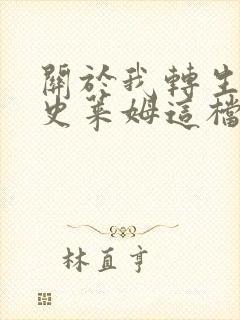 關於我轉生
史萊姆這檔
林直亨